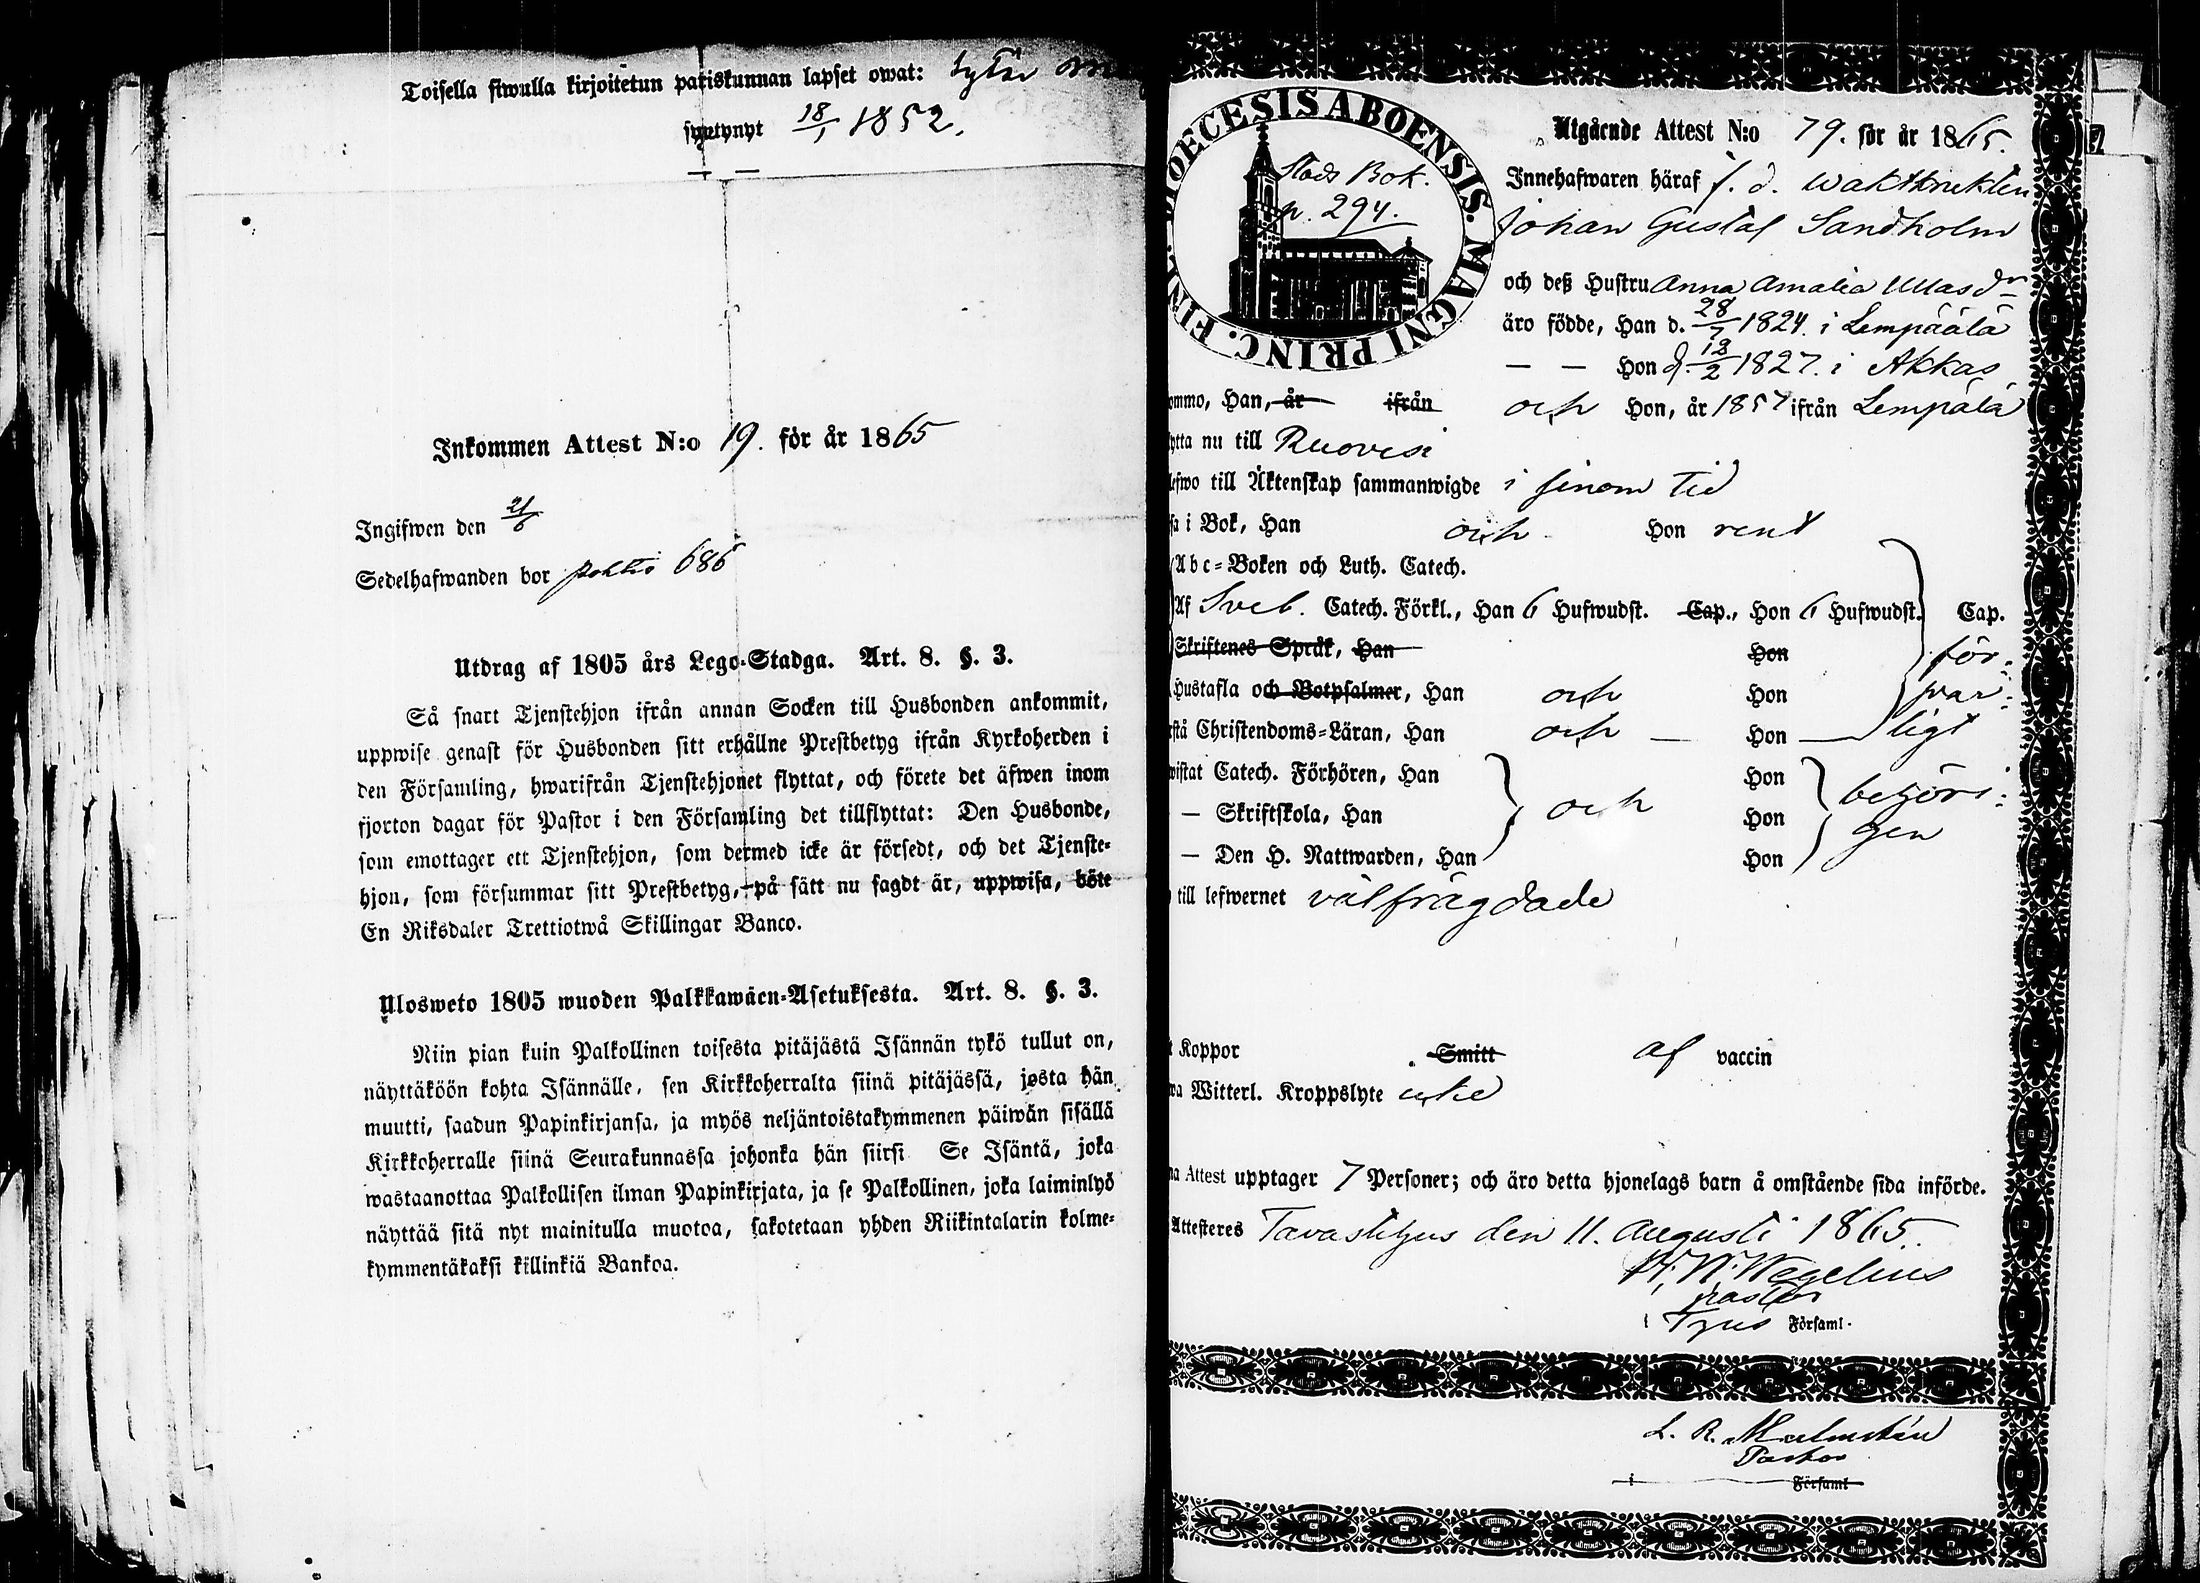 Toisella siwulla kirjoitetun pariskunnan lapset owat:
syntynyt 18/1 1852.
Inkommen Attest N:o 19. för år 1865
Ingifwen den 21/6
Sedelhafwanden bor 686
Utdrag af 1805 års Lego-Stadga. Art. 8. §. 3.
Så snart Tjenstehjon ifrån annan Socken till Husbonden ankommit,
uppwise genast för Husbonden sitt erhållne Prestbetyg ifrån Kyrkoherden i
den Församling, hwarifrån Tjenstehjonet flyttat, och förete det äfwen inom
fjorton dagar för Pastor i den Församling det tillflyttat: Den Husbonde,
som emottager ett Tjenstehjon, som dermed icke är försedt, och det Tjenste-
hjon, som försummar sitt Prestbetyg, på sätt nu sagdt är, uppwisa, böte
En Riksdaler Trettiotwå Skillingar Banco.
Ulosweto 1805 wuoden Palkkawäen-Asetuksesta. Art. 8. §. 3.
Niin pian kuin Palkollinen toisesta pitäjästä Isännän tykö tullut on,
näyttäköön kohta Isännälle, sen Kirkkoherralta siinä pitäjässä, josta hän
muutti, saadun Papinkirjansa, ja myös neljäntoistakymmenen päiwän sisällä
Kirkkoherralle siinä Seurakunnassa johonka hän siirsi Se Isäntä, joka
wastaanottaa Palkollisen ilman Papinkirjata, ja se Palkollinen, joka laiminlyö
näyttää sitä nyt mainitulla muotoa, sakotetaan yhden Riikintalarin kolme-
kymmentäkaksi killinkiä Bankoa.
DIOECESIS ABOENSIS. MAGNI PRINC. FINL.
Stads Bok.
p. 294.
Utgående Attest N:o 79. för år 1865.
Innehafwaren häraf f. d. waktknekten
Johan Gustaf Sandholm
och deß Hustru Anna Amalia Ullasdr
äro födde, Han d. 28/7 1824. i Lempäälä
— — Hon d. 13/2 1827. i Akkas
ommo, Han, år ifrån och Hon, år 1857 ifrån Lempälä
ytta nu till Ruovesi
lefwo till Äktenskap sammanwigde i sinom tid
sa i Bok, Han och Hon rent
Abc-Boken och Luth. Catech.
Af Sveb. Catech. Förkl., Han 6 Hufwudst. Cap., Hon 6 Hufwudst. Cap.
Skriftenes Språk, Han Hon för-
Hustafla och Botpsalmer, Han och Hon svar-
rstå Christendoms-Läran, Han och — Hon — ligt
wistat Catech. Förhören, Han Hon
— Skriftskola, Han och Hon behöri-
gen
— Den H. Nattwarden, Han Hon
till lefwernet välfrägdade
t Koppor Smitt af vaccin
wa Witterl. Kroppslyte icke
na Attest upptager 7 Personer; och äro detta hjonelags barn å omstående sida införde.
Attesteres Tavastehus den 11. Augusti 1865.
Wegelius
pastor
i Tyrvis Församl.
L. R. Malmstén
Pastor
i Församl